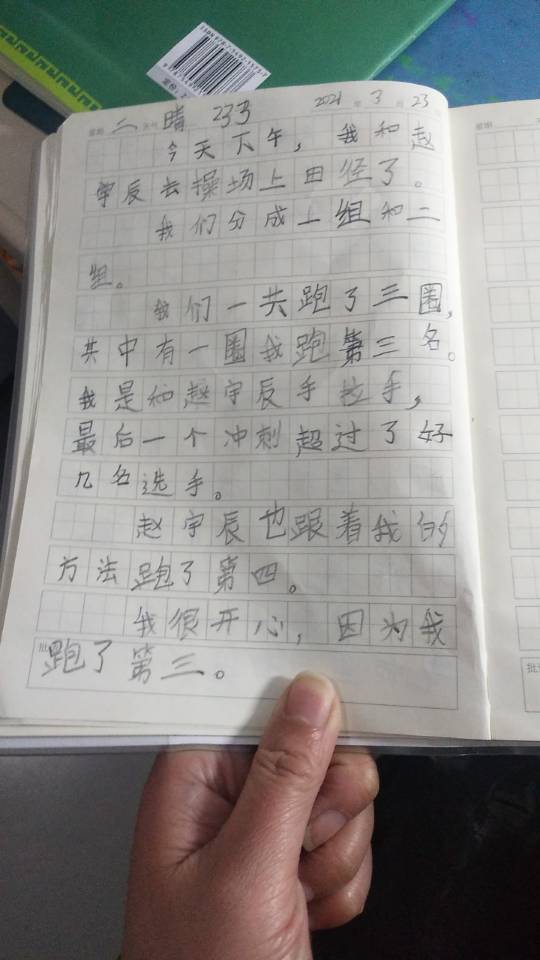 星期 二 天气 晴 2021 年 3 月 23 日
今天下午，我和赵
宇辰去操场上田径了。
我们分成一组和二
组。
我们一共跑了三圈，
共中有一圈我跑第三名。
我是和赵宇辰手拉手，
最后一个冲刺超过了好
几名选手。
赵宇辰也跟着我的
方法跑了第四。
我很开心，因为我
跑了第三。